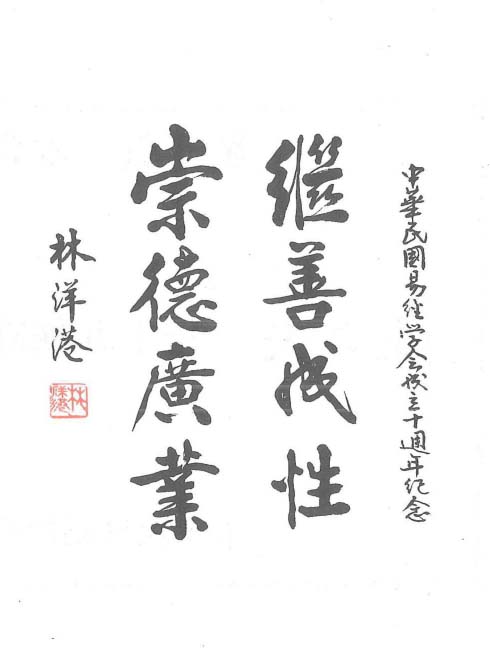 中華民國易經学会成立十週年纪念
繼善成性
崇德廣業
林洋港
林洋港